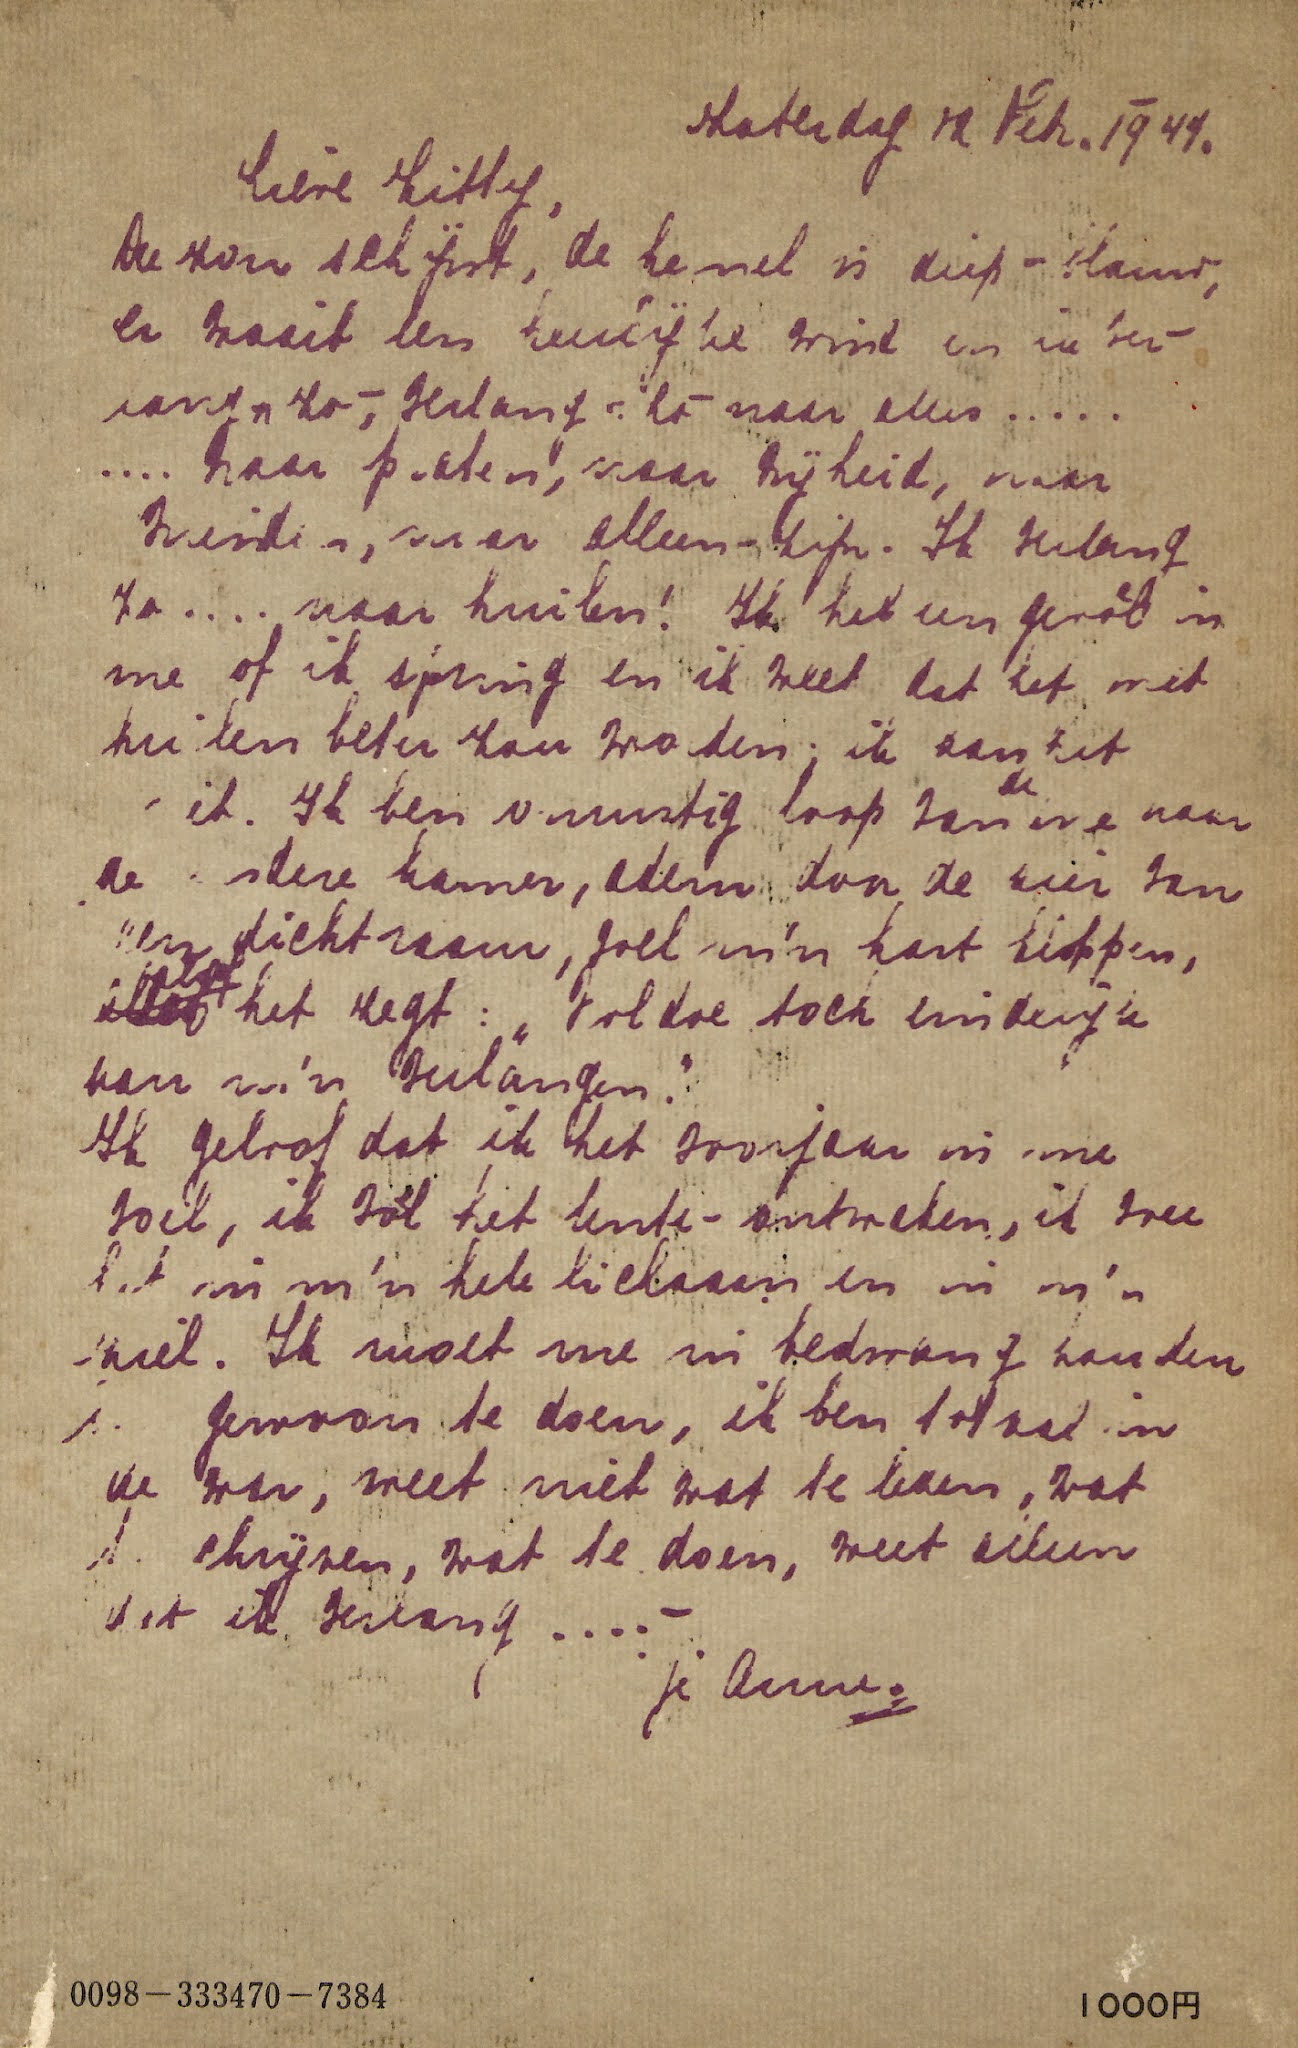 Zaterdag 12 Febr. 1944.
Lieve Kitty,
De zon schijnt, de hemel is diep-blauw,
er waait een heerlijke wind en ik ver-
lang zo-, verlang zo- naar alles .....
.... Naar praten, naar vrijheid, naar
vrienden, naar alleen-zijn. Ik verlang
zo .... naar huilen! Ik heb een gevoel in
me of ik spring en ik weet dat het met
huilen beter zou worden; ik kan het
niet. Ik ben onrustig loop van de ene naar
de andere kamer, adem door de kier van
een dicht raam, voel m'n hart kloppen,
alsof het zegt: „Voldoe toch eindelijk
aan m'n verlangen."
Ik geloof dat ik het voorjaar in me
voel, ik voel het lente-ontwaken, ik voel
het in m'n hele lichaam en in m'n
ziel. Ik moet me in bedwang houden
gewoon te doen, ik ben totaal in
de war, weet niet wat te lezen, wat
te schrijven, wat te doen, weet alleen
dat ik verlang ....-
je Anne.
0098-333470-7384
1000円